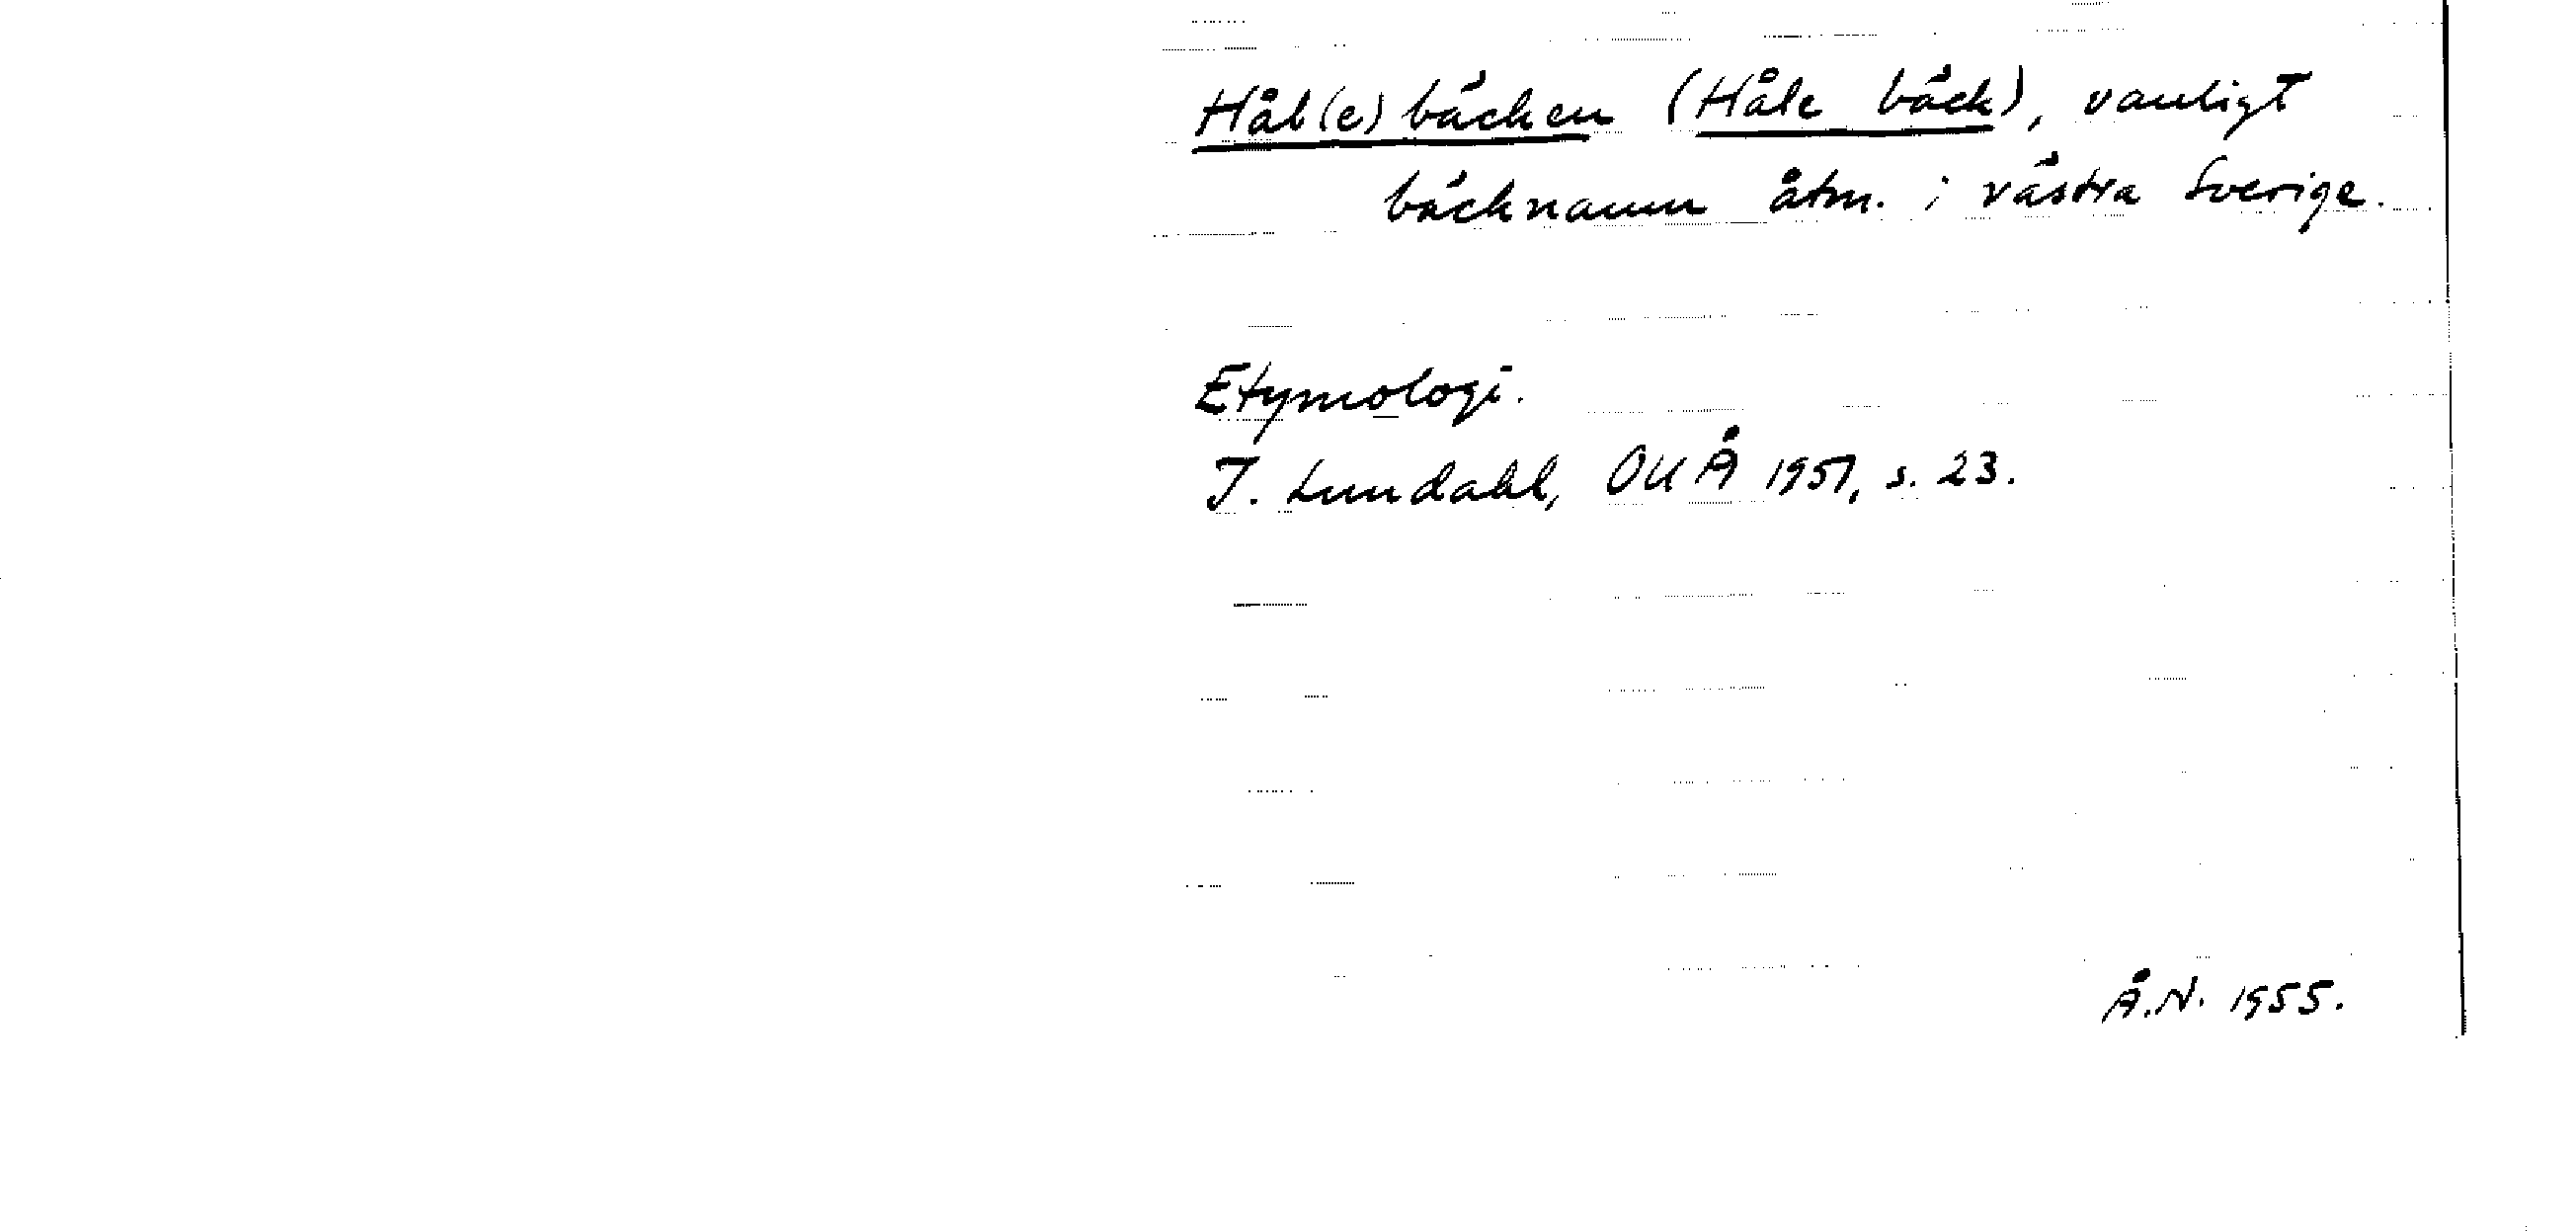 Hål(e)bäcken (Håle bäck), vanligt
bäcknamn åtm. i västra Sverige.
Etymologi.
I. Lundahl, OUÅ 1951, s. 23.
Å.N. 1955.